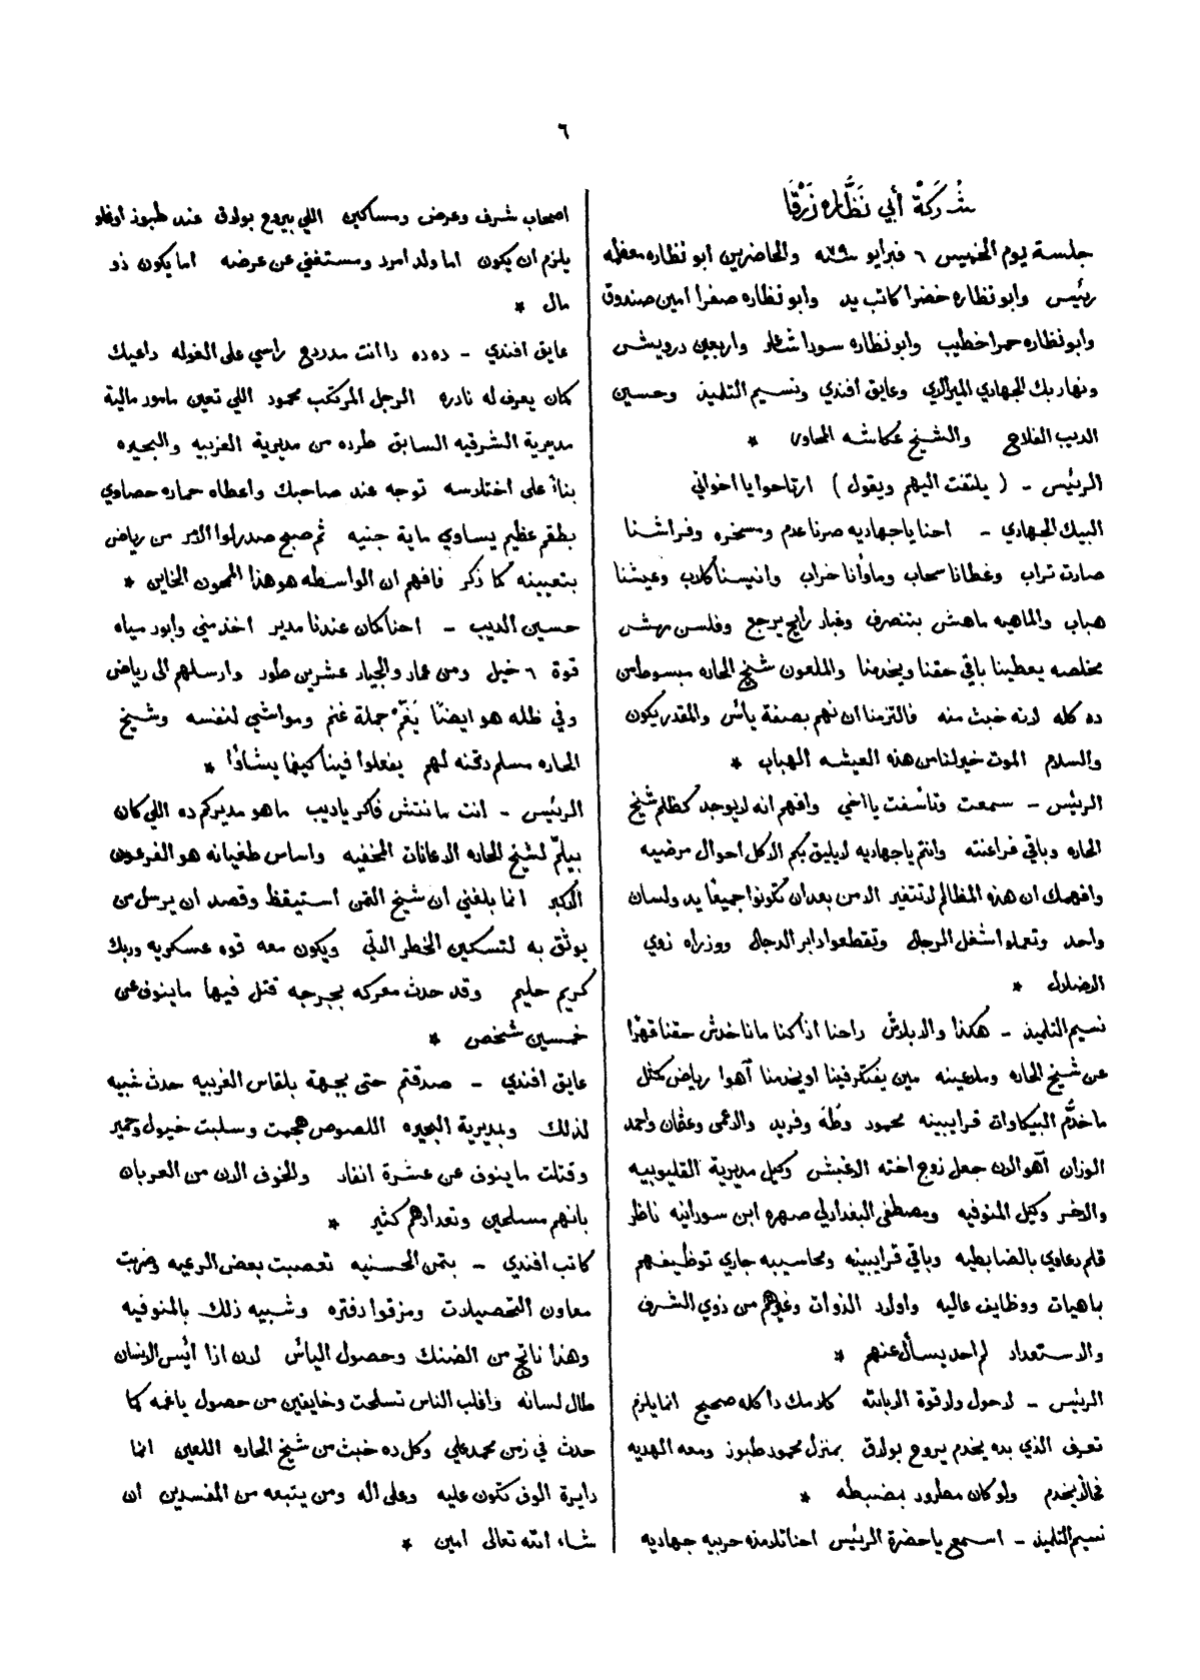 ٦
شركة أبي نظاره زرقا
جلسة يوم الخميس ٦ فبرايو سنه ٧٩ والحاضرين ابو نظاره معظمه
رئيس وابو نظاره خضرا كاتب يد وابو نظاره صفرا امين صندوق
وابو نظاره حمرا خطيب وابو نظاره سودا شاعر واربعين درويش
ونهار بك الجهادي الميرالاي وعايق افندي ونسيم التلميذ وحسين
الديب الفلاح والشيخ عكاشه المحاور *
الرئيس - ( يلتفت اليهم ويقول ) ارتاحوا يا اخواني
البيك الجهادي - احنا يا جهاديه صرنا عدم ومسخره وفراشنا
صارت تراب وغطانا سحاب وماوأنا خراب وانيسنا كلاب وعيشنا
هباب والماهيه ماهش بتنصرف وغبار رايح يرجع وفلسن مهش
مخلصه يعطينا باقي حقنا ويخدمنا والملعون شيخ الحاره مبسوط من
ده كله لانه خبث منه فالتزمنا ان نهم بصفة يأس والمقدر يكون
والسلام الموت خير لنا من هذه العيشه الهباب *
الرئيس - سمعت وتأسفت يا اخي وافهم انه لا يوجد كظلم شيخ
الحاره وباقي فراعنته وانتم يا جهاديه لا يليق بكم الا كل احوال مرضيه
وافهمك ان هذه المظالم لا تتغير الا من بعد ان تكونوا جميعًا يد ولسان
واحد وتعملوا شغل الرجال وتقطعوا دابر الدجال ووزراه ذوي
الاضلال *
نسيم التلميذ - هكذا والا بلاش راحنا اذا كنا ما ناخدش حقنا قهرًا
عن شيخ الحاره وملاعينه مين يفتكر فينا او يخدمنا آهوا رياض كمثل
ما خدّم البيكاوات قرايبينه محمود وطه وفريد والاعمى وعثمان واحمد
الوزان آهو الان جعل زوج اخته الاغبش وكيل مديرية القليوبيه
والاخر وكيل المنوفيه ومصطفى البغدادلي صهره ابن سودانيه ناظر
قلم دعاوي بالضابطيه وباقي قرايبينه ومحاسيبه جاري توظيفهم
بماهيات ووظايف عاليه واولاد الذوات وغيرهم من ذوي الشرف
والاستعداد لم احد يسأل عنهم *
الرئيس - لا حول ولا قوة الا بالله كلامك دا كله صحيح انما يلزم
تعرف الذي بده يخدم يروح بولاق بمنزل محمود طبوز ومعه الهديه
فحالاً يخدم ولو كان مطرود بمضبطه *
نسيم التلميذ - اسمع يا حضرة الرئيس احنا تلامذه حربيه جهاديه
اصحاب شرف وعرض ومساكين اللي بيروح بولاق عند طبوز أوغلو
يلزم ان يكون اما ولد امرد ومستغني عن عرضه اما يكون ذو
مال *
عايق افندي - ده ده دا انت مدردح راسي على الغوله داعيك
كمان يعرف له نادره الرجل المرتكب محمود اللي تعين مامور مالية
مديرية الشرقيه السابق طرده من مديرية الغربيه والبحيره
بنأً على اختلاسه توجه عند صاحبك واعطاه حماره حصاوي
بطقم عظيم يساوي ماية جنيه ثم صبح صدر لوا الامر من رياض
بتعيينه كما ذكر فافهم ان الواسطه هو هذا الخاين *
حسين الديب - احنا كان عندنا مدير اخذ مني وابور مياه
قوة ٦ خيل ومن عمار والجيار عشرين طور وارسلهم الى رياض
وفي ظله هو ايضًا يَغُمّ جملة غنم ومواشي لنفسه وشيخ
الحاره مسلم دقنه لهم يفعلوا فينا كيفما يشاؤا *
الرئيس - انت مانتش فاكر يا ديب ما هو مديركم ده اللي كان
بيلمّ لشيخ الحاره الاعانات المخفيه واساس طغيانه هو الفرعون
الاكبر انما بلغني ان شيخ التمن استيقظ وقصد ان يرسل من
يوثق به لتسكين الخطر الاتي ويكون معه قوه عسكريه وربك
كريم حليم وقد حدث معركه بجرجه قتل فيها ما ينوف عن
خمسين شخص *
عايق افندي - صدقتم حتى بجهة بلقاس الغربيه حدث شبيه
لذلك وبمديرية البحيره اللصوص هجمت وسلبت خيول وحمير
وقتلت ما ينوف عن عشرة انفار والخوف الان من العربان
بانهم مسلحين وتعدادهم كثير *
كاتب افندي - بتمن الحسنيه تعصبت بعض الرعيه وضربت
معاون التحصيلات ومزقوا دفتره وشبيه ذلك بالمنوفيه
وهذا ناتج من الضنك وحصول اليأس لان اذا أيس الانسان
طال لسانه واغلب الناس تسلحت وخايفين من حصول ياغمه كما
حدث في زمن محمد علي وكل ده خبث من شيخ الحاره اللعين انما
دايرة الوف تكون عليه وعلى اله ومن يتبعه من المفسدين ان
شاء الله تعالى امين *